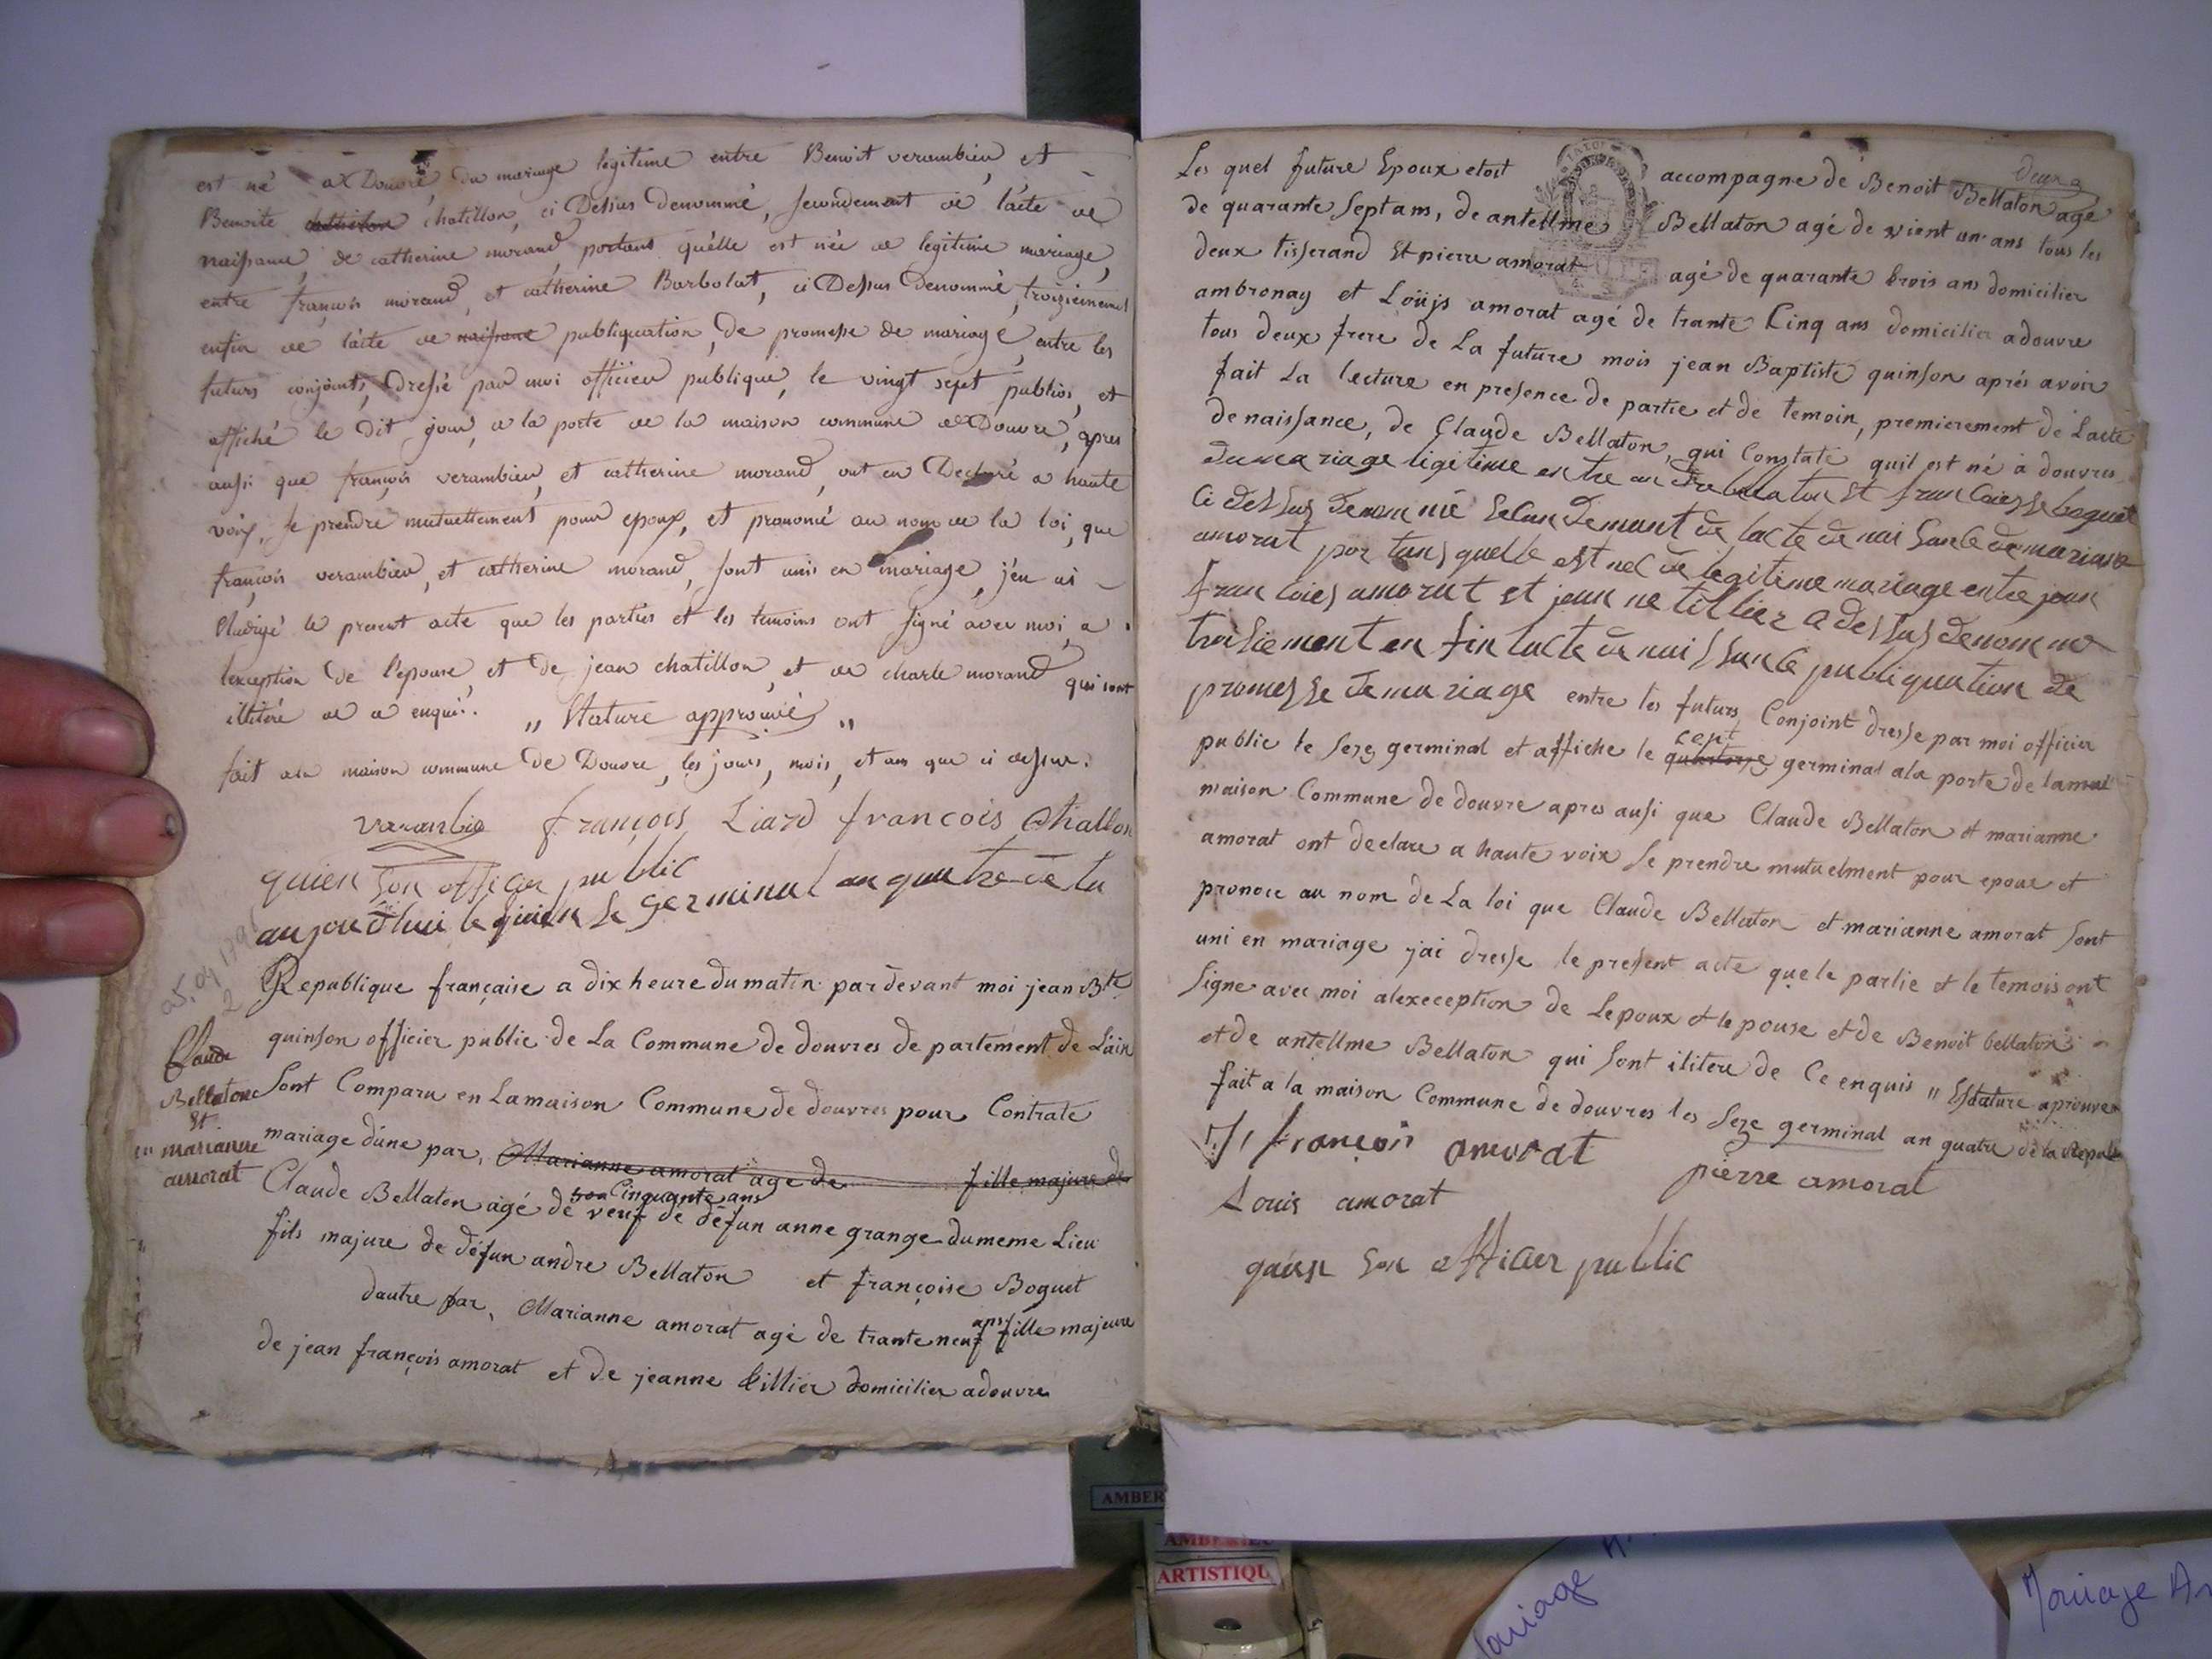 est né a Douvre, du mariage legitime entre Benoit verambieu, et
Benoite chatillon, ci Dessus denommé, secondement de l'acte de
naissance, de catherine morand portant qu'elle est née de legitime mariage,
entre françois morand, et catherine Barbolat, ci Dessus Denommé, troizieiment
enfin de l'acte de naissance publiquation, De promesse de mariage, entre les
futurs conjoints, dressé par moi officier publique, le vingt sept publios, et
affiché le dit jour, a la porte de la maison commune de Douvre, apres
aussi que françois verambieu, et catherine morand, ont en Declaré a haute
voix, se prendre mutuellement pour epoux, et prononcé au nom de la loi, que
françois verambieu, et catherine morand, sont unis en mariage, j'en ai
Rédigé le present acte que les parties et les temoins ont signé avec moi, a
lexception de l'epouse, et de jean chatillon, et de charle morand qui sont
illitéré de a enqui. " Stature approuvé "
fait a la maison commune de Douvre, les jours, mois, et an que ci dessus.
verambie françois Liard francois Chatillon
quien son officier public
aujourd'hui le quien se germinal an quatre de la
Republique française a dix heure du matin par devant moi jean Bte
quinson officier public de La Commune de douvres departement de L'ain
Claude
Bellaton
et
marianne
amorat
Sont Comparu en La maison Commune de douvres pour Contraté
mariage d'une par, Marianne amorat age de fille majure de
Cinquante ans
Claude Bellaton agé de veuf de défun anne grange du meme Lieu
fils majure de défun andre Bellaton et françoise Boguet
dautre par, Marianne amorat agé de trante neuf ans fille majeure
de jean françois amorat et de jeanne tillier domicilier adouvre
deux
Les quel future Epoux etoit accompagne de Benoit Bellaton agé
de quarante Sept ans, de antellme Bellaton agé de vient un ans tous les
deux tisserand Et pierre amorat agé de quarante trois ans domicilier
ambronay et Loüis amorat agé de trante Cinq ans domicilier adouvre
tous deux frere de La future mois jean Baptiste quinson aprés avoir
fait La lecture en presence de partie et de temoin, premierement de L'acte
de naissance, de Claude Bellaton, qui Constate quil est né à douvres
du mariage ligitime entre andre bellaton et francoiesse boguet
Ci dessus denommé Secondemant de lacte de naisance de mariane
amorat portans quelle est nee de legitime mariage entre jean
francoies amorat et jeanne tillier Ci dessus denommé
trosiemant en fin lacte de naissance publiquation de
promesse de mariage entre les futurs Conjoint dresse par moi officier
cept
public le Seze germinal et affiche le quatorze germinal ala porte de lamai
maison Commune de douvre apres aussi que Claude Bellaton et marianne
amorat ont declare a haute voix Se prendre mutuelment pour epoux et
pronore au nom de La loi que Claude Bellaton et marianne amorat Sont
uni en mariage jai dresse le present acte que le partie et le temois ont
Signe avec moi alexeception de Lepoux et lepouse et de Benoit bellaton
et de antellme Bellaton qui Sont ilitere de Ce enquis " Estature aprouve
fait a la maison Commune de douvres les Seze germinal an quatre de la Repub
J françois amorat pierre amorat
Louis amorat
quin son officier public
AMBER
ARTISTIQU
Mariage
Mariage